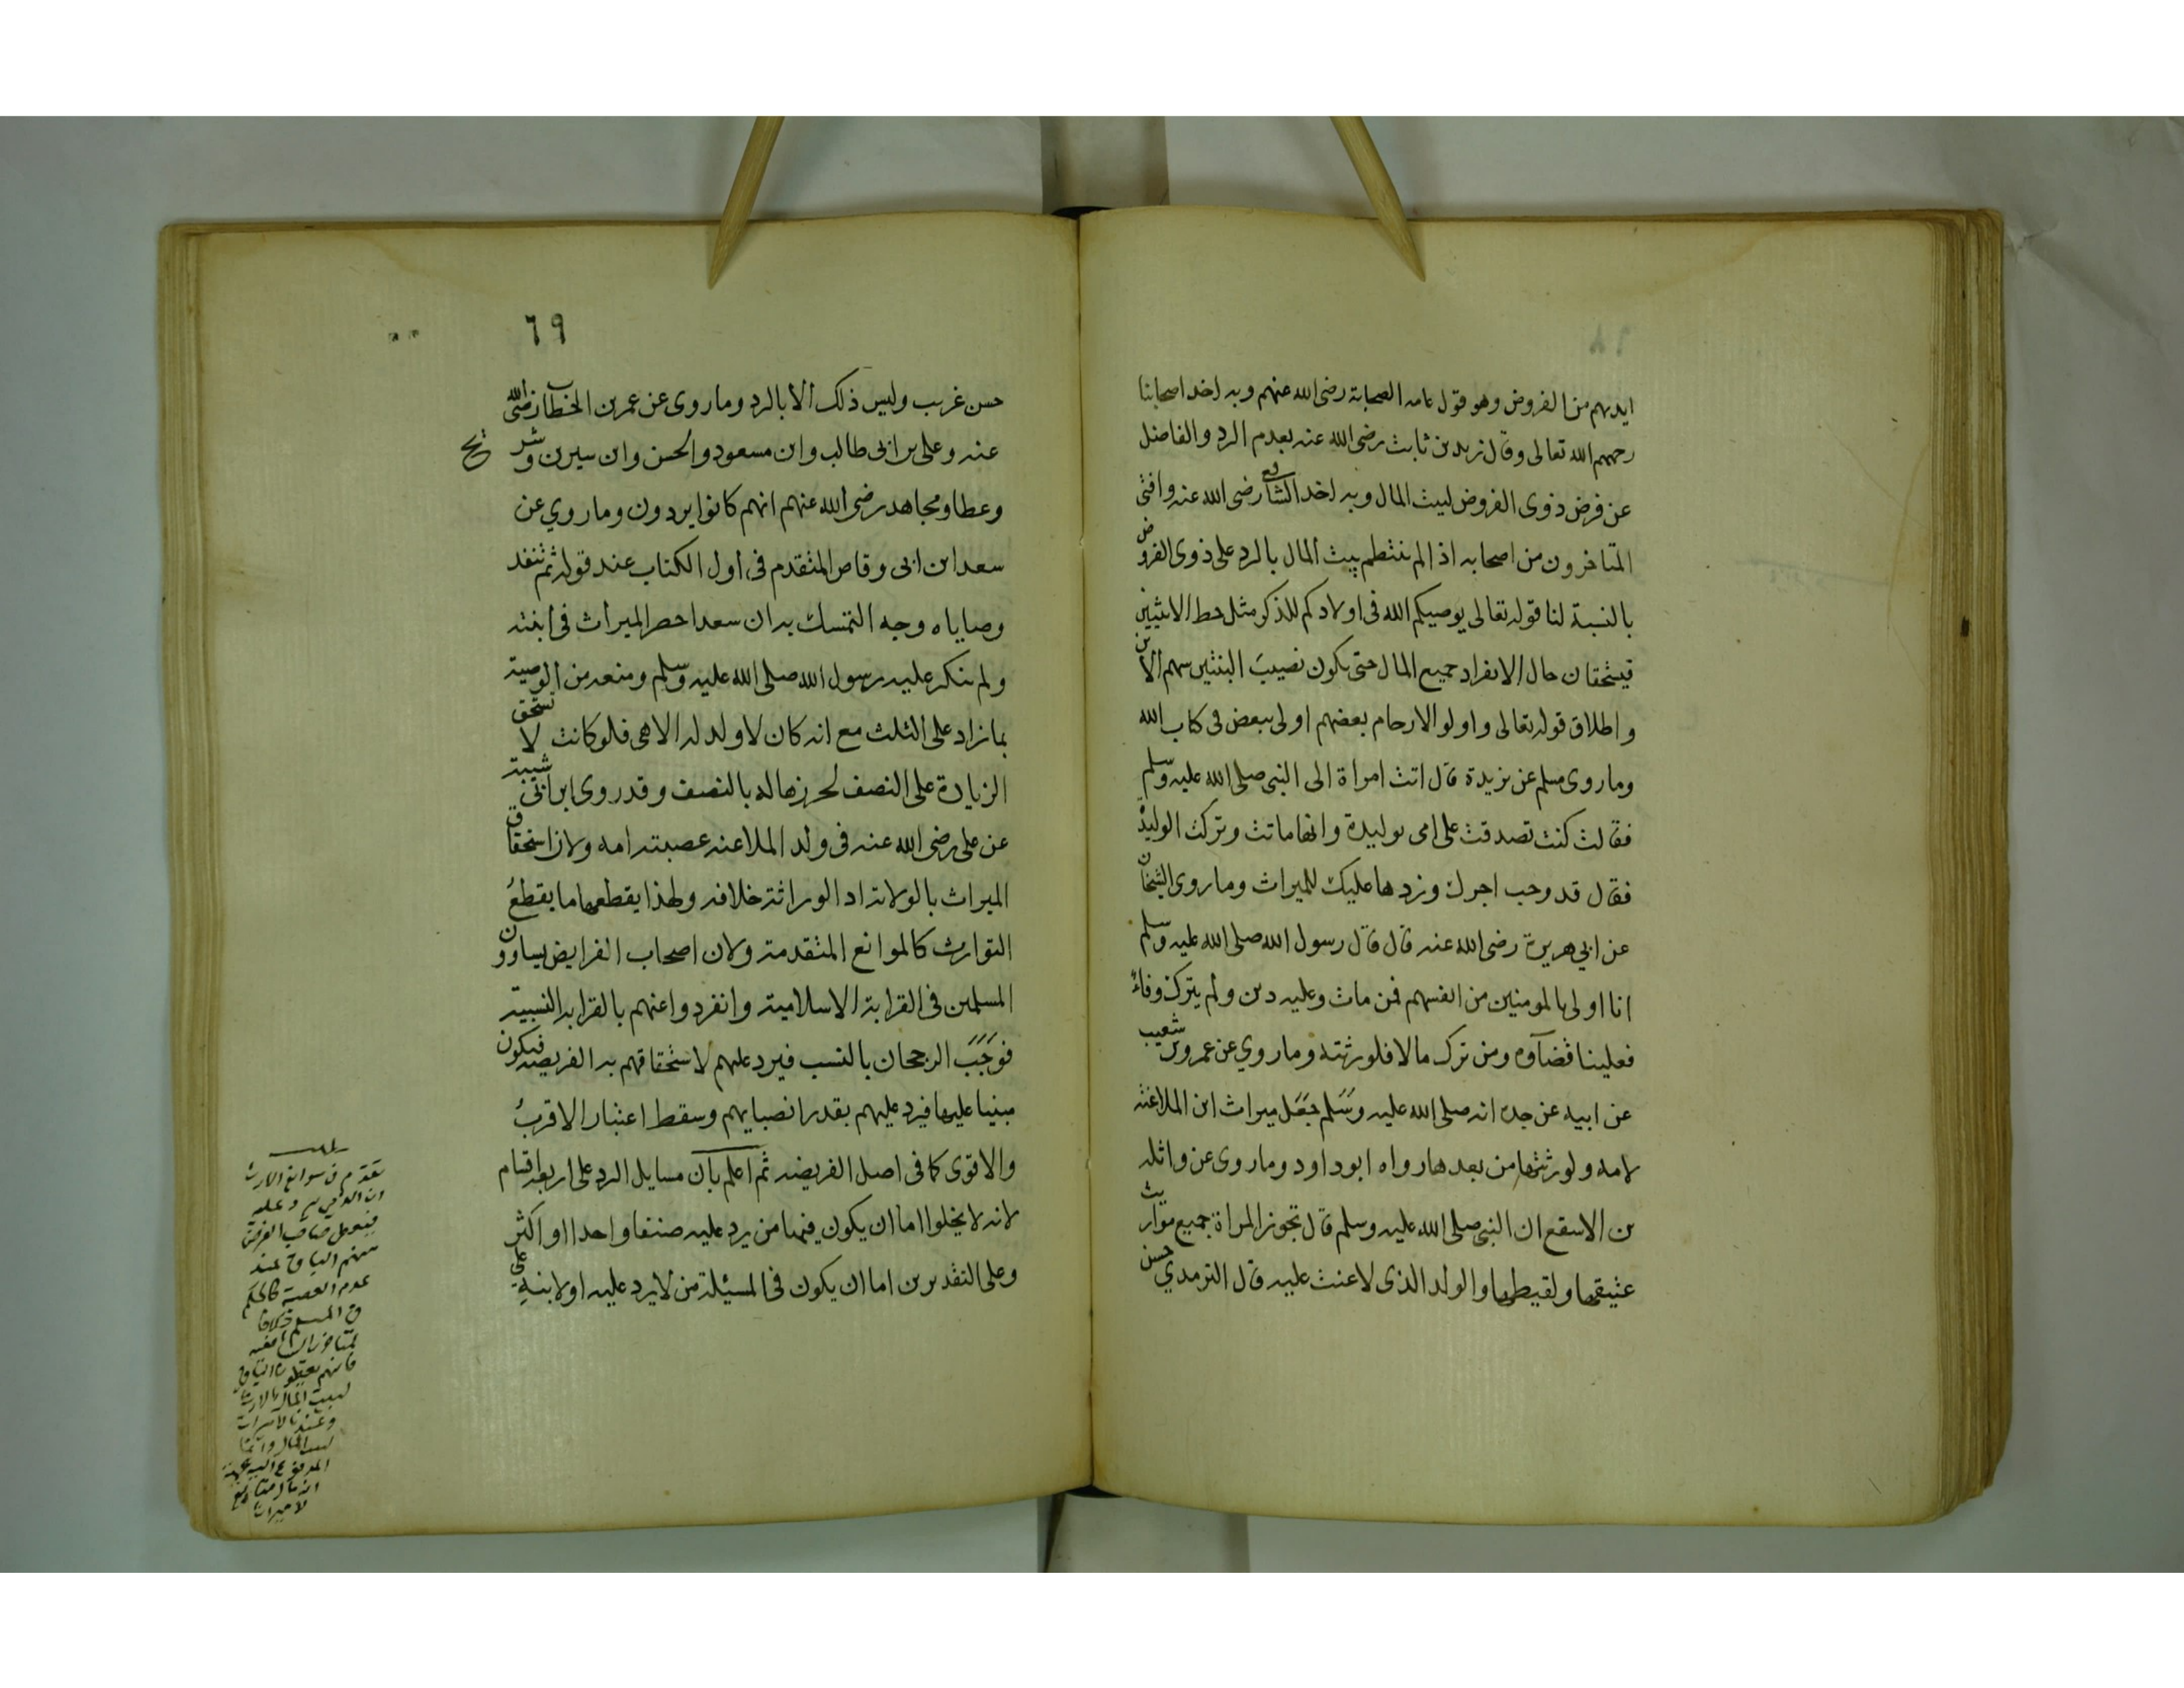 ايديهم من الفروض وهو قول عامه الصحابة رضى الله عنهم وبه اخد اصحابنا
رحمهم الله تعالى وقال زيد بن ثابت رضى الله عنه بعدم الرد والفاضل
عن فرض ذوى الفروض لبيت المال وبه اخد الشافعى رضى الله عنه وافتى
المتاخرون من اصحابه اذا لم ينتظم بيت المال بالرد على ذوى الفروض
بالنسبة لنا قوله تعالى يوصيكم الله فى اولادكم للذكر مثل حظ الانثيين
فيستحقان حال الانفراد جميع المال حتى يكون نصيب البنتين سهم الابن
واطلاق قوله تعالى واولو الارحام بعضهم اولى ببعض فى كتاب الله
وما روى مسلم عن بريدة قال اتت امراة الى النبى صلى الله عليه وسلم
فقالت كنت تصدقت على امى بوليدة وانها ماتت وتركت الوليدة
فقال قد وجب اجرك وردها عليك الميراث وما روى الشيخان
عن ابي هريرة رضى الله عنه قال قال رسول الله صلى الله عليه وسلم
انا اولى بالمومنين من انفسهم فمن مات وعليه دين ولم يترك وفاءً
فعلينا قضآوه ومن ترك مالا فلورثته وما روي عن عمرو بن شعيب
عن ابيه عن جده انه صلى الله عليه وسلم جعل ميراث ابن الملاعنه
لامه ولورثتها من بعدها رواه ابو داود وما روى عن واثله
بن الاسقع ان النبى صلى الله عليه وسلم قال تحوز المراة جميع مواريث
عتيقها ولقيطها والولد الذى لاعنت عليه قال الترمدي حسن
٦٩
حسن غريب وليس ذلك الا بالرد وما روى عن عمر بن الخطاب رضى الله
عنه وعلى بن ابى طالب وابن مسعود والحسن وابن سيرين وشريح
وعطا ومجاهد رضى الله عنهم انهم كانوا يردون وما روي عن
سعد ابن ابى وقاص المتقدم فى اول الكتاب عند قوله ثم تنفد
وصاياه وجه التمسك به ان سعدا حصر الميراث فى ابنته
ولم ينكر عليه رسول الله صلى الله عليه وسلم ومنعه من الوصية
بما زاد على الثلث مع انه كان لا ولد له الا هى فلو كانت لا تستحق
الزيادة على النصف لجرز ماله بالنصف وقد روى ابن ابى شيبة
عن على رضى الله عنه فى ولد الملاعنه عصبته امه ولان استحقاق
الميراث بالولاية اد الوراثة خلافه ولهذا يقطعها ما يقطعُ
التوارث كالموانع المتقدمة ولان اصحاب الفرايض يساوون
المسلمين فى القرابة الاسلامية وانفردوا عنهم بالقرابه النسبية
فوجب الرجحان بالنسب فيرد عليهم لاستحقاقهم به الفريضه فيكون
مبنيا عليها فيرد عليهم بقدر انصبايهم وسقط اعتبار الاقربُ
والاقوى كما فى اصل الفريضه ثم اعلم بأن مسايل الرد على اربعة اقسام
لانه لا يخلوا اما ان يكون فيها من يرد عليه صنفا واحدا او اكثر
وعلى التقديرين اما ان يكون فى المسئلة من لا يرد عليه او لا بنية على
ان الذمي يرد عليه
عدم العصبة كالحكم
لبيت المال بالارث
لا ميراثا